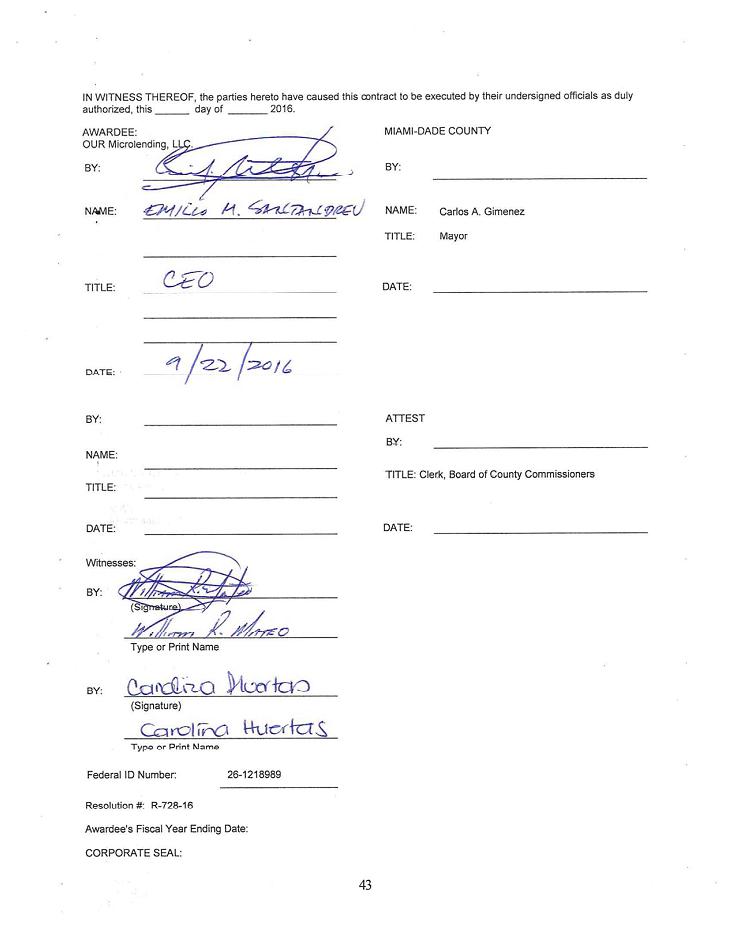 IN WITNESS THEREOF, the parties hereto have caused this contract to be executed by their undersigned officials as duly
authorized, this ______ day of ______ 2016.
AWARDEE:
OUR Microlending, LLC.
MIAMI-DADE COUNTY
BY:
BY:
NAME: EMILIO M. SANTANDREU
NAME: Carlos A. Gimenez
TITLE: Mayor
TITLE: CEO
DATE:
DATE: 9/22/2016
BY:
ATTEST
BY:
NAME:
TITLE: Clerk, Board of County Commissioners
TITLE:
DATE:
DATE:
Witnesses:
BY: William R. Mateo
(Signature)
William R. MATEO
Type or Print Name
BY: Carolina Huertas
(Signature)
Carolina Huertas
Type or Print Name
Federal ID Number: 26-1218989
Resolution #: R-728-16
Awardee's Fiscal Year Ending Date:
CORPORATE SEAL:
43